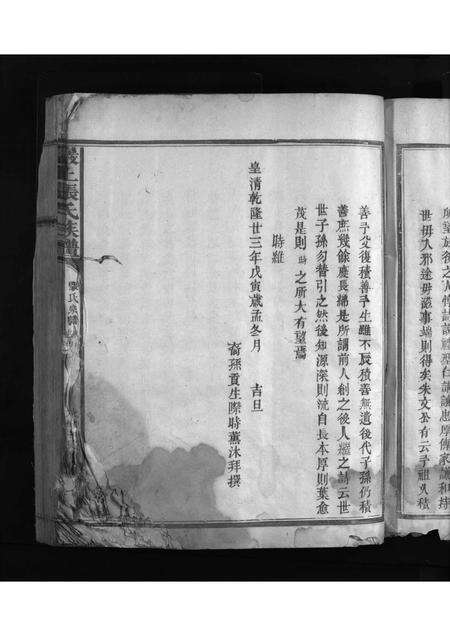 世毋入邪途毋惹事端則得矣朱文公有云子祖父積
善子父復積善子生雖不辰積善無遺後代子孫仍積
善庶幾餘慶長綿是所謂前人創之後人繼之詩云世
世子孫勿替引之然後知源深則流自長本厚則葉愈
茂是則時之所大有望焉
時維
皇清乾隆廿三年戊寅歲孟冬月 吉旦
裔孫貢生際時薰沐拜撰
張氏族譜